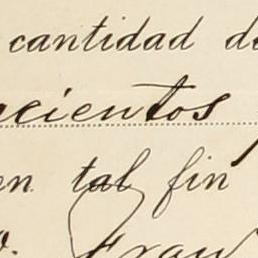 cantidad de
cientos
en tal fin